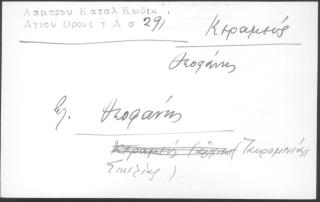 Λαμπρου Καταλ Κωδικ.
Αγιου Ορους τ Α σ 291
Κεραμεύς
Θεοφάνης
Βλ. Θεοφάνης
Κεραμεύς (Ταυρομενίας
Σικελίας)